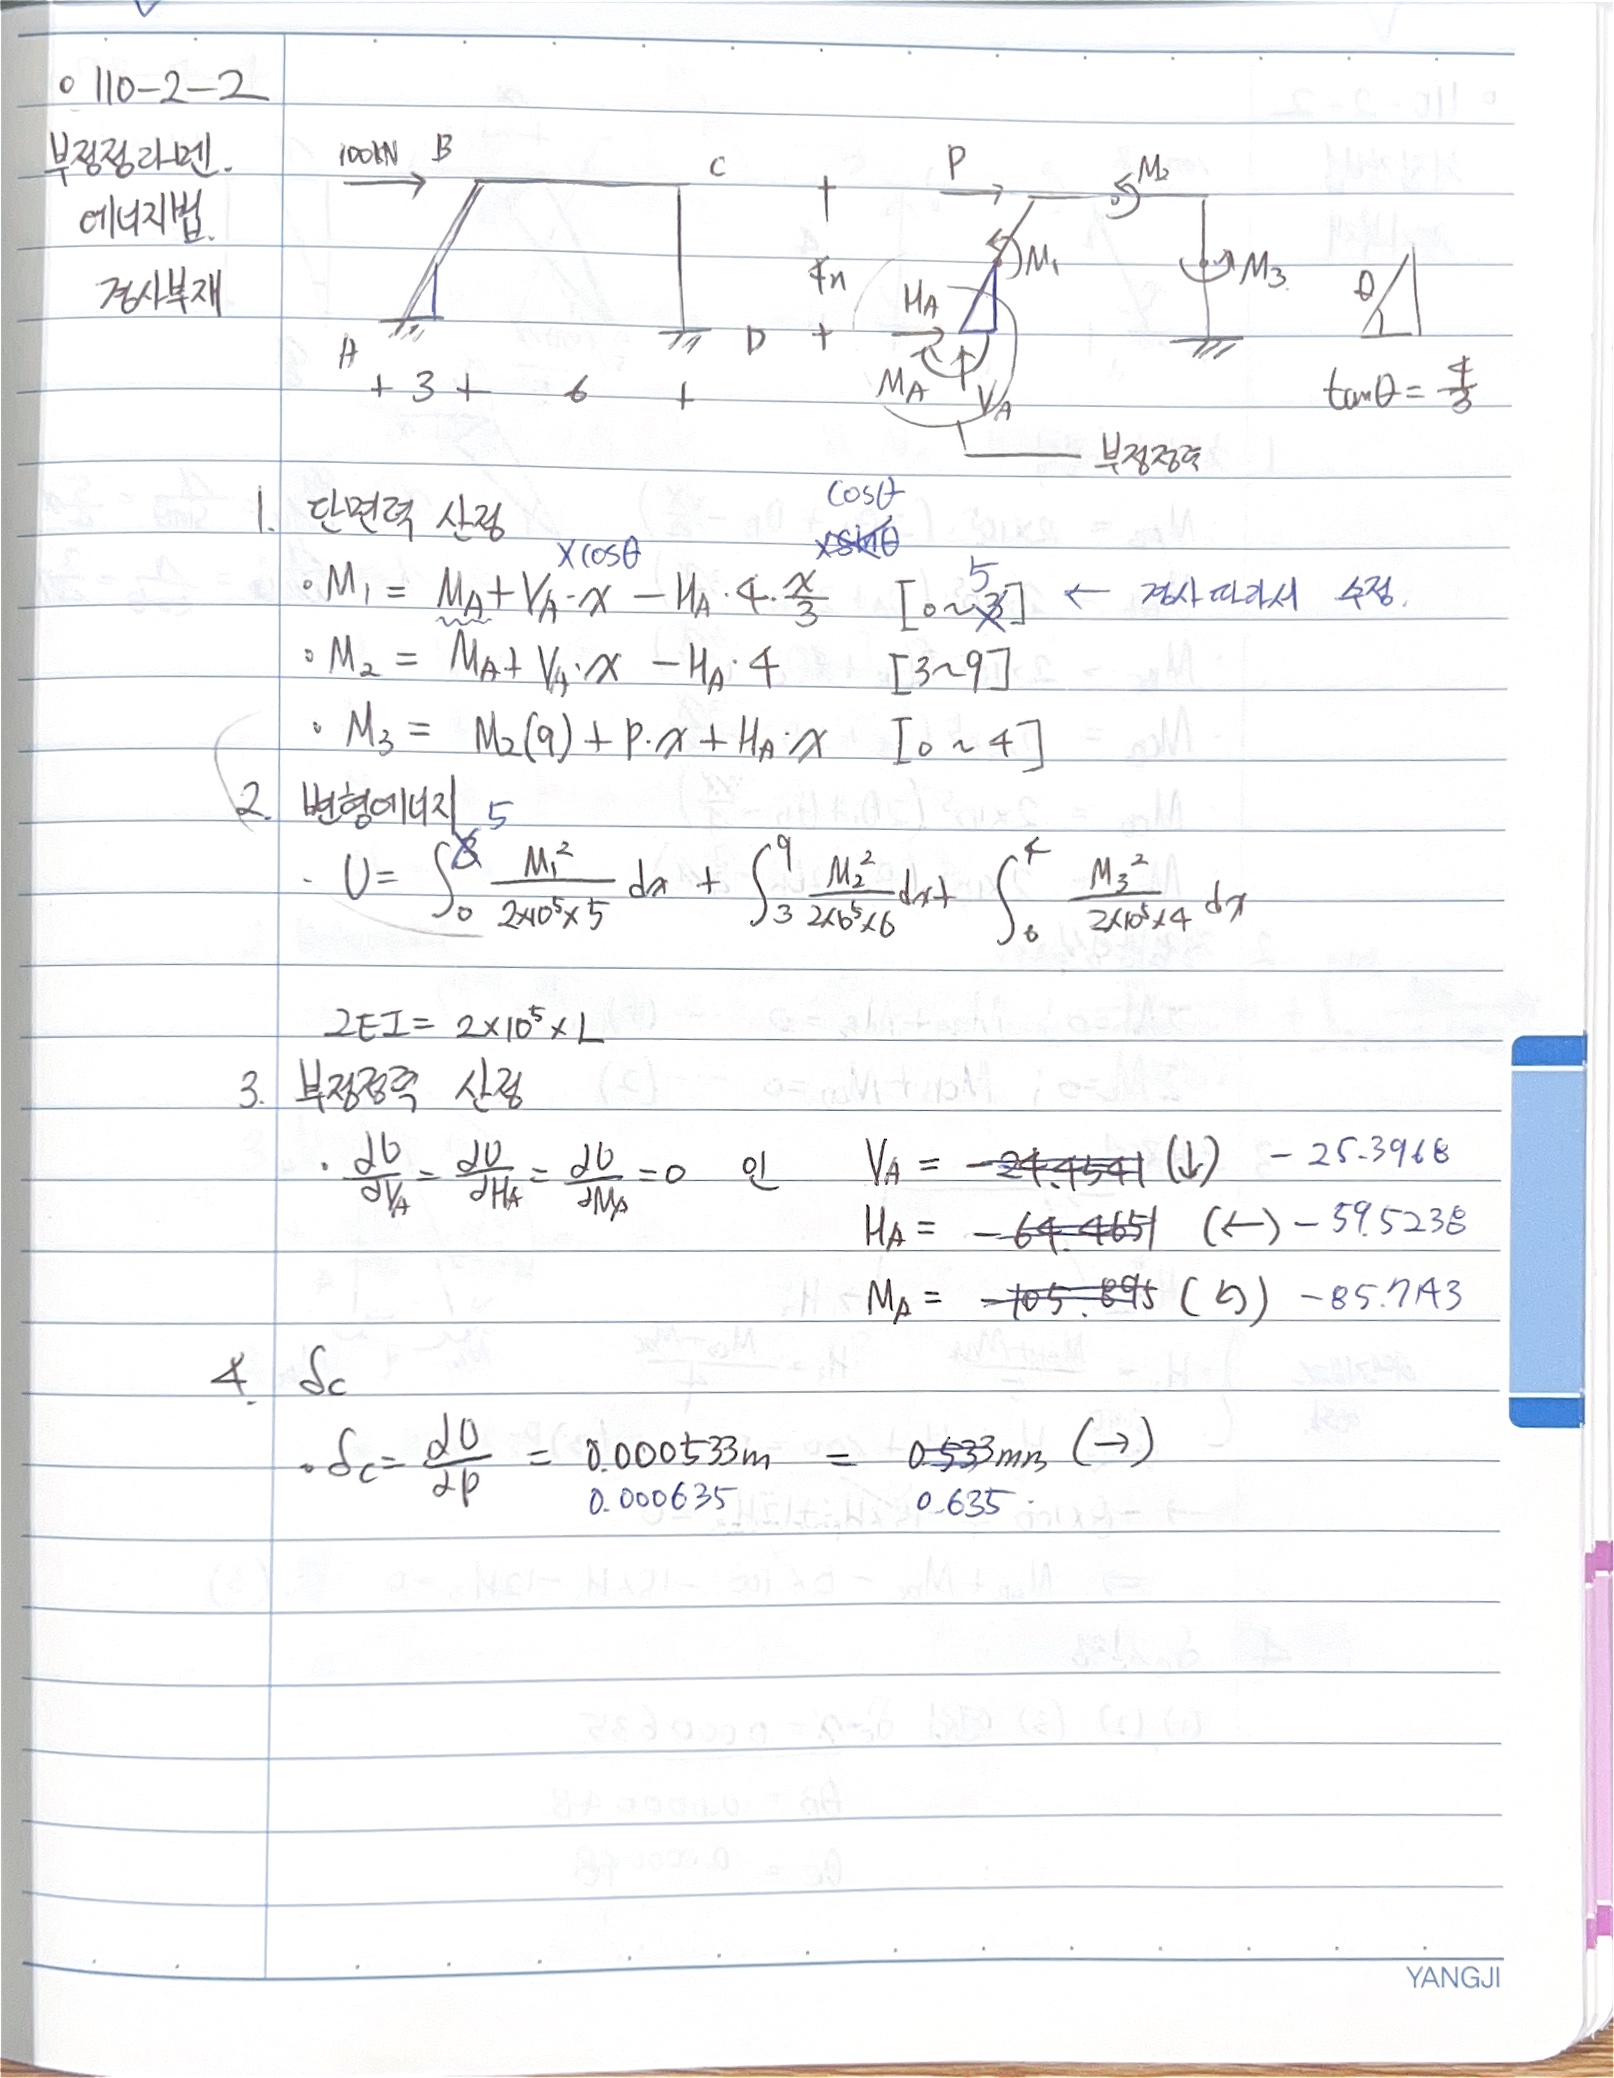 ○ 110-2-2
부정정라멘.
에너지법.
경사부재
100kN B C
A D
+ 3 + 6 +
4m
P M₂
M₁ M₃
H_A
M_A V_A
부정정력
θ
tanθ = 4/3
1. 단면력 산정
×cosθ cosθ
◦ M₁ = M_A + V_A·x − H_A·4·x/3 [0~5] ← 경사따라서 수정.
◦ M₂ = M_A + V_A·x − H_A·4 [3~9]
· M₃ = M₂(9) + P·x + H_A·x [0~4]
2. 변형에너지
· U = ∫₀⁵ M₁²/(2×10⁵×5) dx + ∫₃⁹ M₂²/(2×10⁵×6) dx + ∫₀⁴ M₃²/(2×10⁵×4) dx
2EI = 2×10⁵×L
3. 부정정력 산정
· ∂U/∂V_A = ∂U/∂H_A = ∂U/∂M_A = 0 인 V_A = -24.4541 (↓) -25.3968
H_A = -64.4651 (←) -59.5238
M_A = -105.895 (↺) -85.7143
4. δc
· δc = ∂U/∂P = 0.000533m = 0.533mm (→)
0.000635 0.635
YANGJI